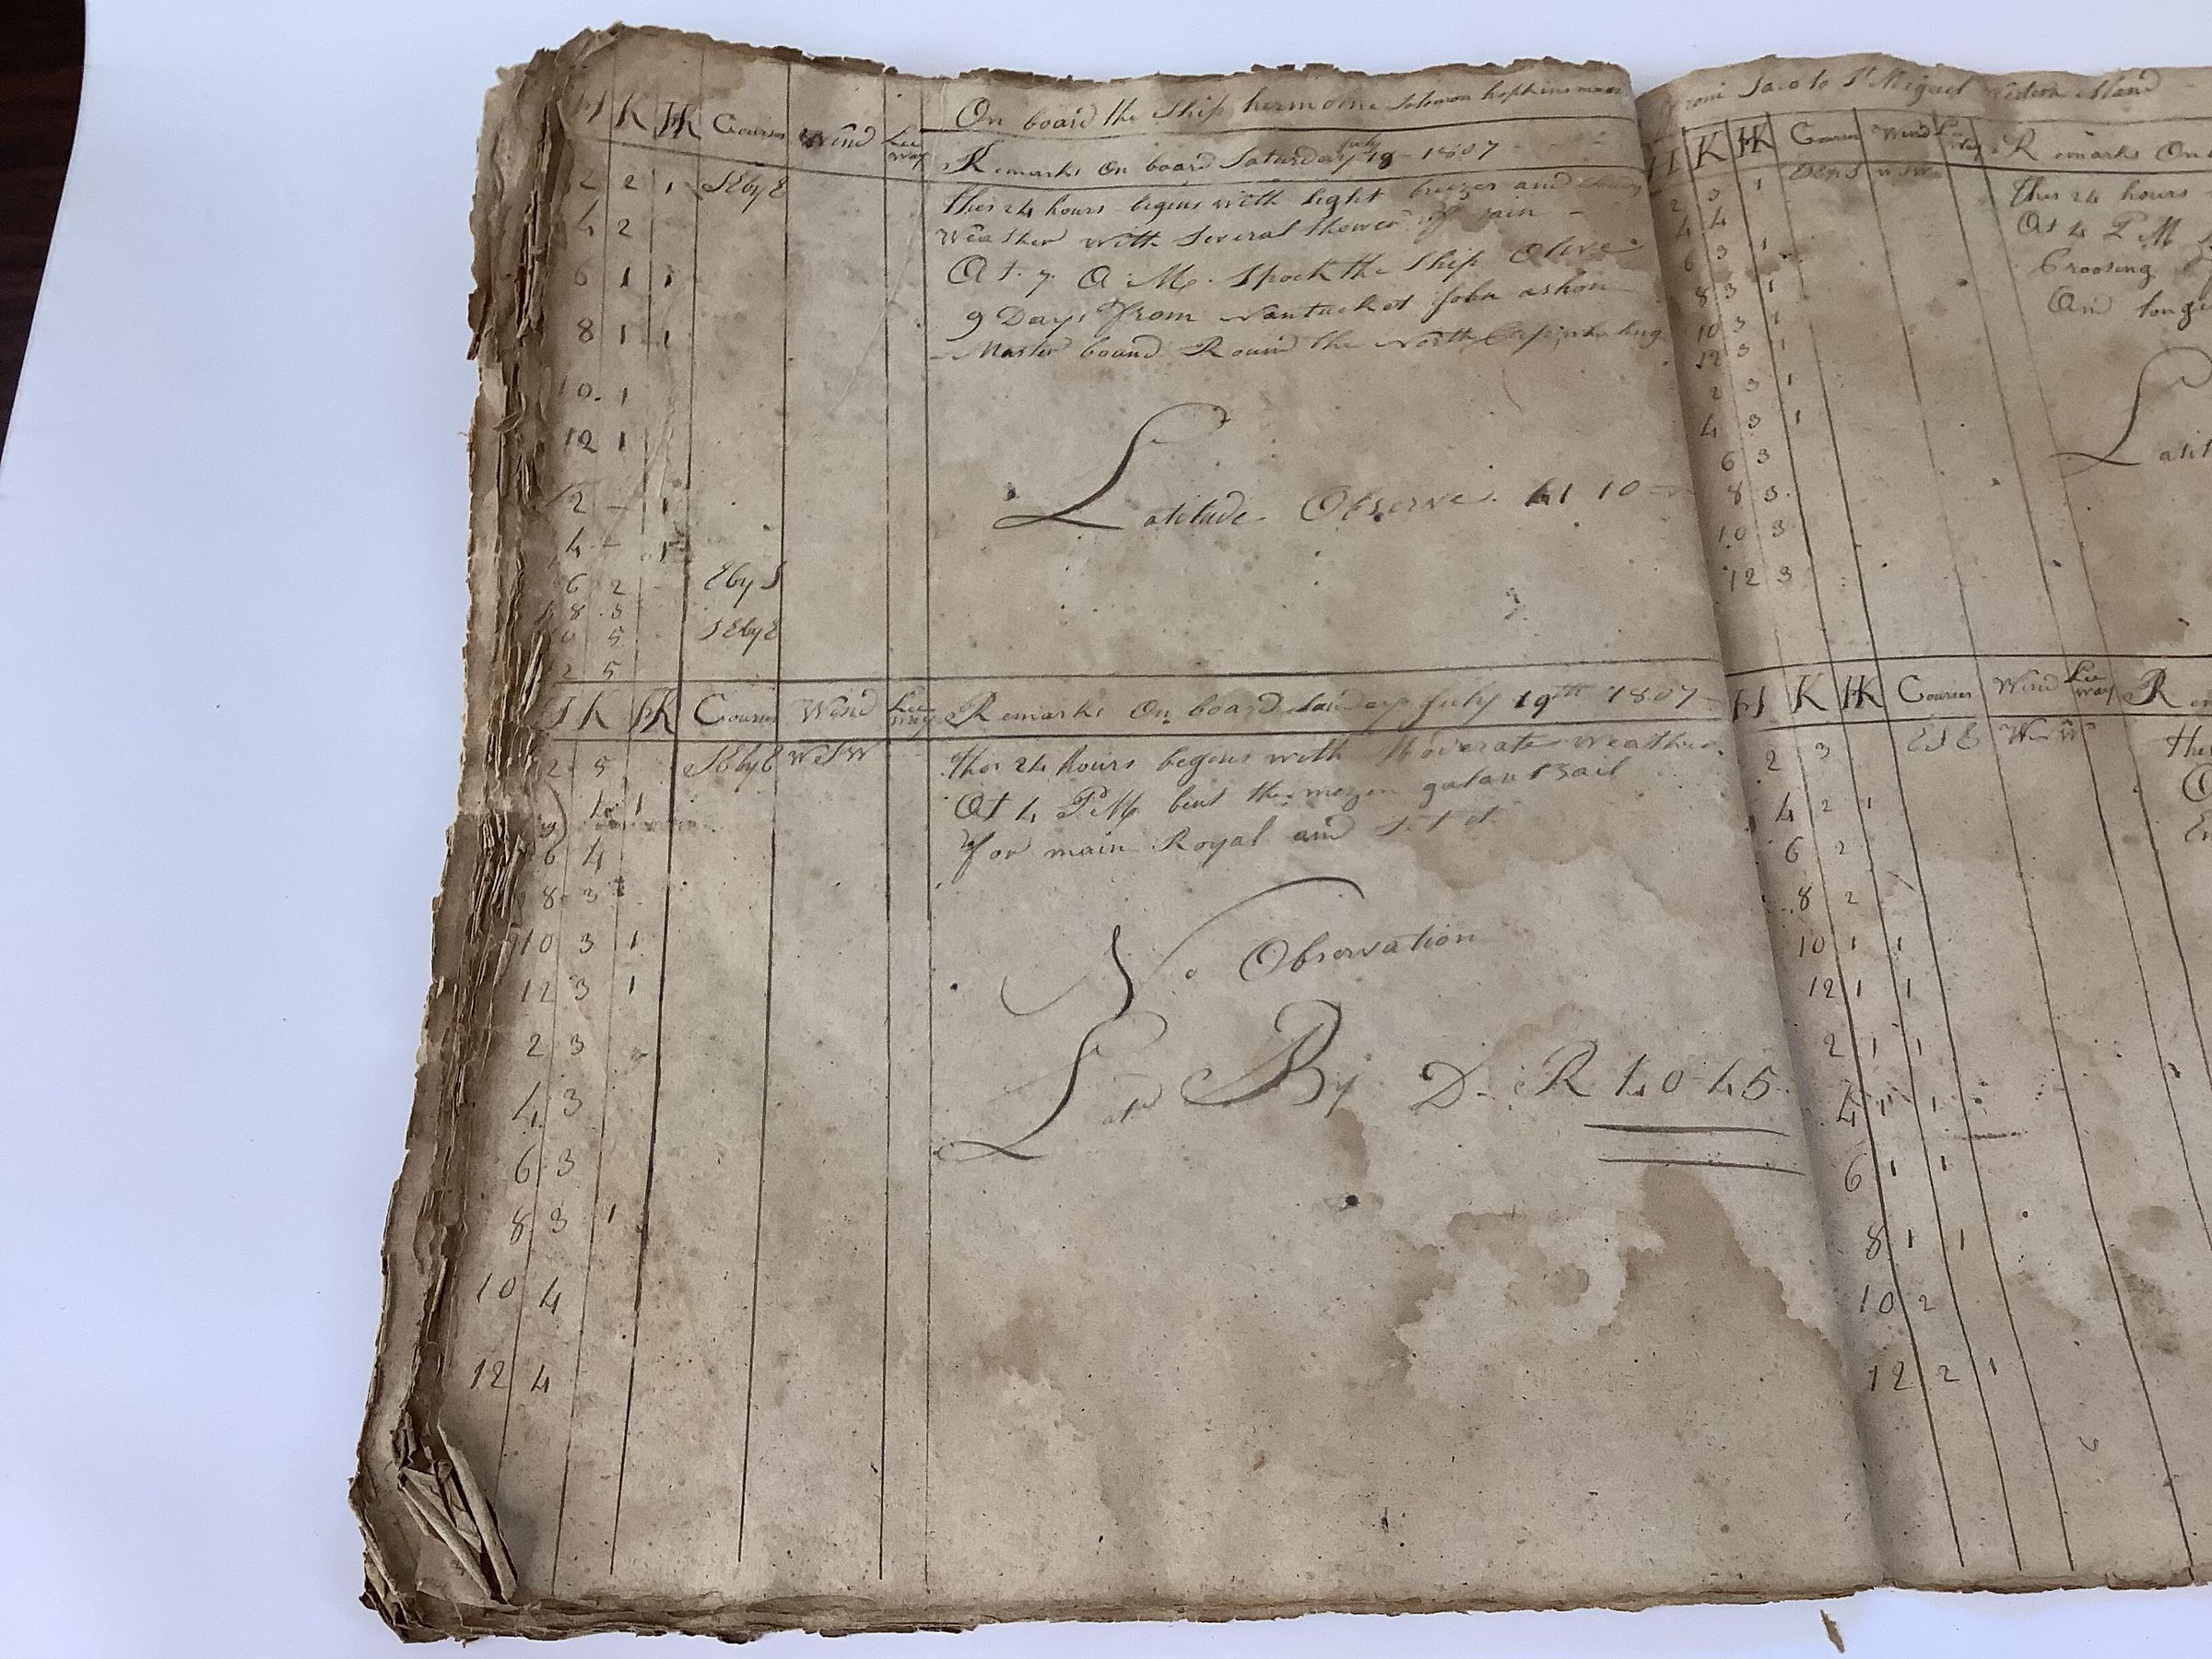 On board the Ship hermoine Solomon hopkins
H K HK Courses Wind Lee way
Remarks On board Saturday July 18 - 1807
2 2 1 SEbyE
4 2
6 1 1
8 1 1
10 1
12 1
2 - 1
4 - 1
6 2 EbyS
8 3
10 5 SEbyE
12 5
this 24 hours begins with light breezes and
Weather with Several Shower of rain
At 7 A M Spock the Ship Olive
9 Days from Nantucket John
Master bound Round the North
Latitude Observe 41 10
H K HK Courses Wind Lee way Remarks On board Sunday July 19th 1807
2 5 SEbyE WSW
4 1
6 4
8 3
10 3 1
12 3 1
2 3
4 3
6 3
8 3 1
10 4
12 4
this 24 hours begins with Moderate Weather
At 4 PM bent the mezen galant Sail
for main Royal and Set it
No Observation
Latd By D R 40 45
from to St Miguel Western Island
H K HK Courses Wind Lee way Remarks On
2 3 1
4 4
6 3 1
8 3 1
10 3 1
12 3 1
2 3 1
4 3 1
6 3
8 3
10 3
12 3
this 24 hours
At 4 P M
Crossing
An longi
Latit
H K HK Courses Wind Lee way Rem
2 3 ESE WNW
4 2 1
6 2
8 2
10 1 1
12 1 1
2 1 1
4 1 1
6 1 1
8 1 1
10 2
12 2 1
the